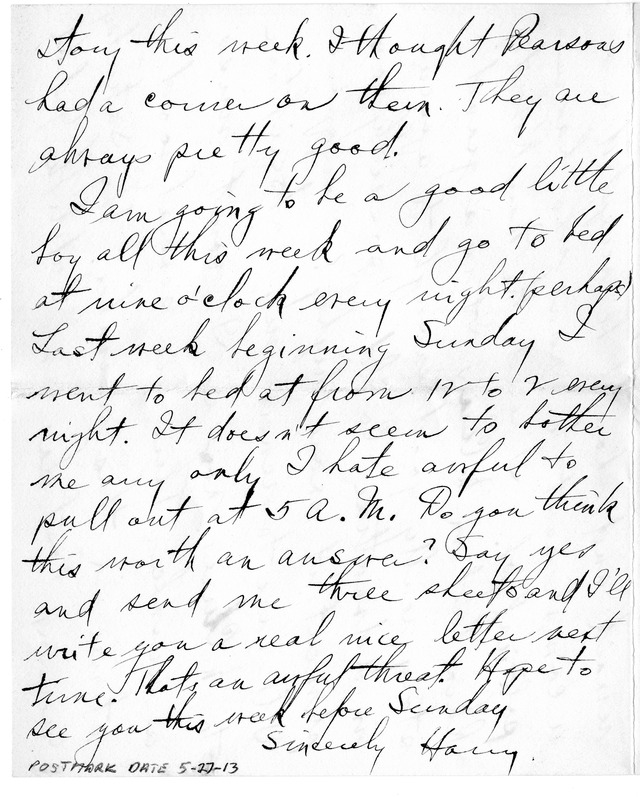 story this week. I thought Pearsons
had a corner on them. They are
always pretty good.
I am going to be a good little
boy all this week and go to bed
at nine o'clock every night. (perhaps)
Last week beginning Sunday I
went to bed at from 12 to 2 every
night. It doesn't seem to bother
me any only I hate awful to
pull out at 5 A.M. Do you think
this worth an answer? Say yes
and send me three sheets and I'll
write you a real nice letter next
time. Thats an awful threat. Hope to
see you this week before Sunday
Sincerely Harry.
POSTMARK DATE 5-27-13